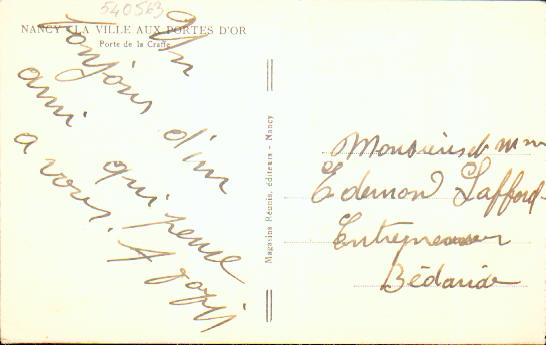 540563
NANCY LA VILLE AUX PORTES D'OR
Porte de la Craffe
Un
toujours d'un
ami qui pense
a vous.
Magasins Réunis, éditeurs - Nancy
Monsieur et Mme
Edemon Lafford
Entrepreneur